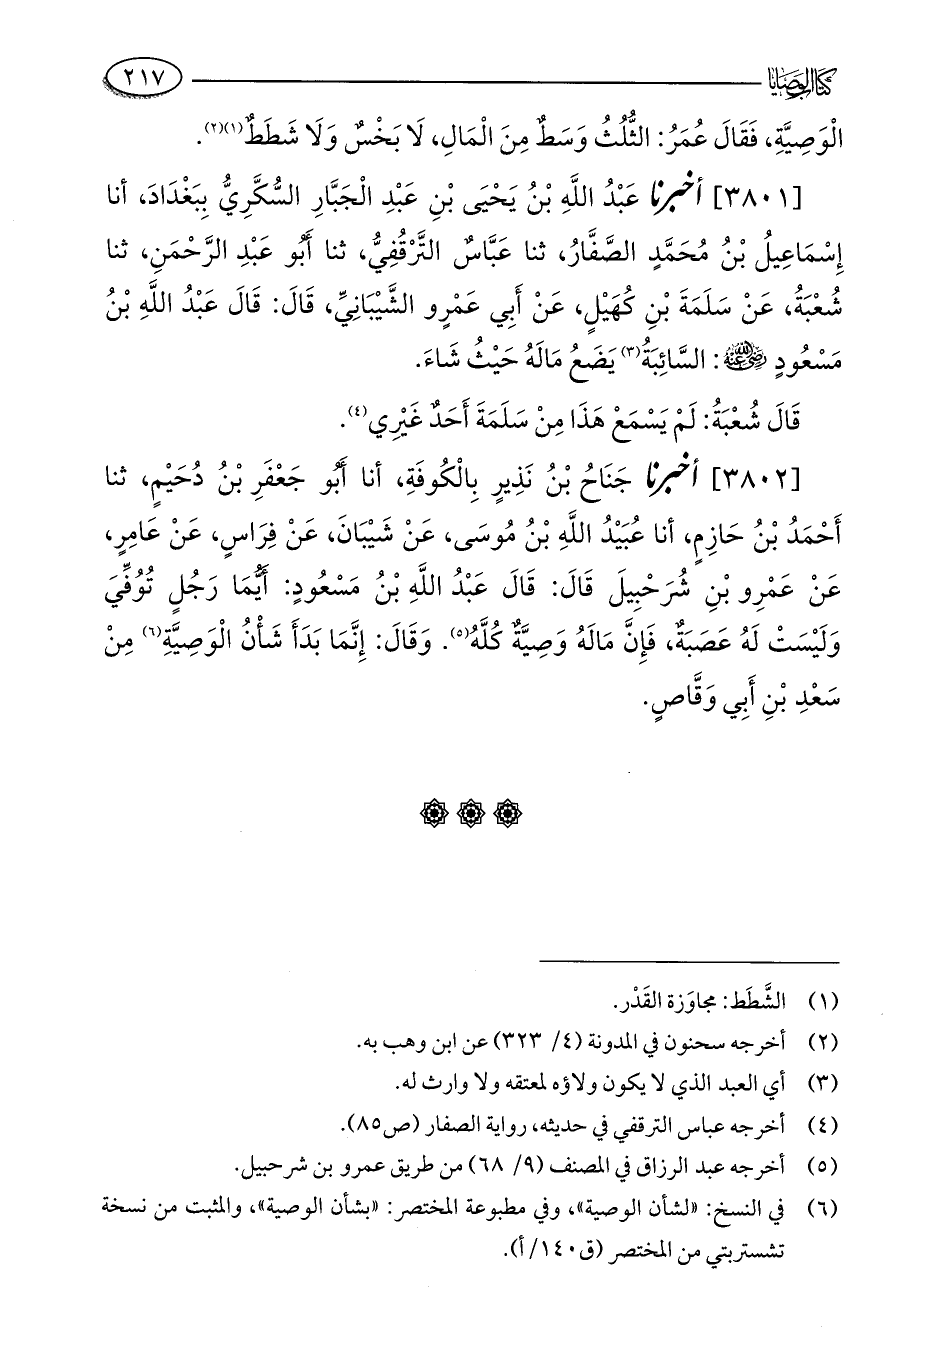 كتاب الوصايا
٢١٧
الْوَصِيَّةِ، فَقَالَ عُمَرُ: الثُّلُثُ وَسَطٌ مِنَ الْمَالِ، لَا بَخْسٌ وَلَا شَطَطٌ(١)(٢).
[٣٨٠١] أخبرنا عَبْدُ اللَّهِ بْنُ يَحْيَى بْنِ عَبْدِ الْجَبَّارِ السُّكَّرِيُّ بِبَغْدَادَ، أنا
إِسْمَاعِيلُ بْنُ مُحَمَّدٍ الصَّفَّارُ، ثنا عَبَّاسٌ التَّرْقُفِيُّ، ثنا أَبُو عَبْدِ الرَّحْمَنِ، ثنا
شُعْبَةُ، عَنْ سَلَمَةَ بْنِ كُهَيْلٍ، عَنْ أَبِي عَمْرٍو الشَّيْبَانِيِّ، قَالَ: قَالَ عَبْدُ اللَّهِ بْنُ
مَسْعُودٍ رضي الله عنه: السَّائِبَةُ(٣) يَضَعُ مَالَهُ حَيْثُ شَاءَ.
قَالَ شُعْبَةُ: لَمْ يَسْمَعْ هَذَا مِنْ سَلَمَةَ أَحَدٌ غَيْرِي(٤).
[٣٨٠٢] أخبرنا جَنَاحُ بْنُ نَذِيرٍ بِالْكُوفَةِ، أنا أَبُو جَعْفَرِ بْنُ دُحَيْمٍ، ثنا
أَحْمَدُ بْنُ حَازِمٍ، أنا عُبَيْدُ اللَّهِ بْنُ مُوسَى، عَنْ شَيْبَانَ، عَنْ فِرَاسٍ، عَنْ عَامِرٍ،
عَنْ عَمْرِو بْنِ شُرَحْبِيلَ قَالَ: قَالَ عَبْدُ اللَّهِ بْنُ مَسْعُودٍ: أَيُّمَا رَجُلٍ تُوُفِّيَ
وَلَيْسَتْ لَهُ عَصَبَةٌ، فَإِنَّ مَالَهُ وَصِيَّةٌ كُلَّهُ(٥). وَقَالَ: إِنَّمَا بَدَأَ شَأْنُ الْوَصِيَّةِ(٦) مِنْ
سَعْدِ بْنِ أَبِي وَقَّاصٍ.
(١) الشَّطَط: مجاوَزة القَدْر.
(٢) أخرجه سحنون في المدونة (٤/ ٣٢٣) عن ابن وهب به.
(٣) أي العبد الذي لا يكون ولاؤه لمعتقه ولا وارث له.
(٤) أخرجه عباس الترقفي في حديثه، رواية الصفار (ص٨٥).
(٥) أخرجه عبد الرزاق في المصنف (٩/ ٦٨) من طريق عمرو بن شرحبيل.
(٦) في النسخ: «لشأن الوصية»، وفي مطبوعة المختصر: «بشأن الوصية»، والمثبت من نسخة
تشستربتي من المختصر (ق١٤٠/أ).